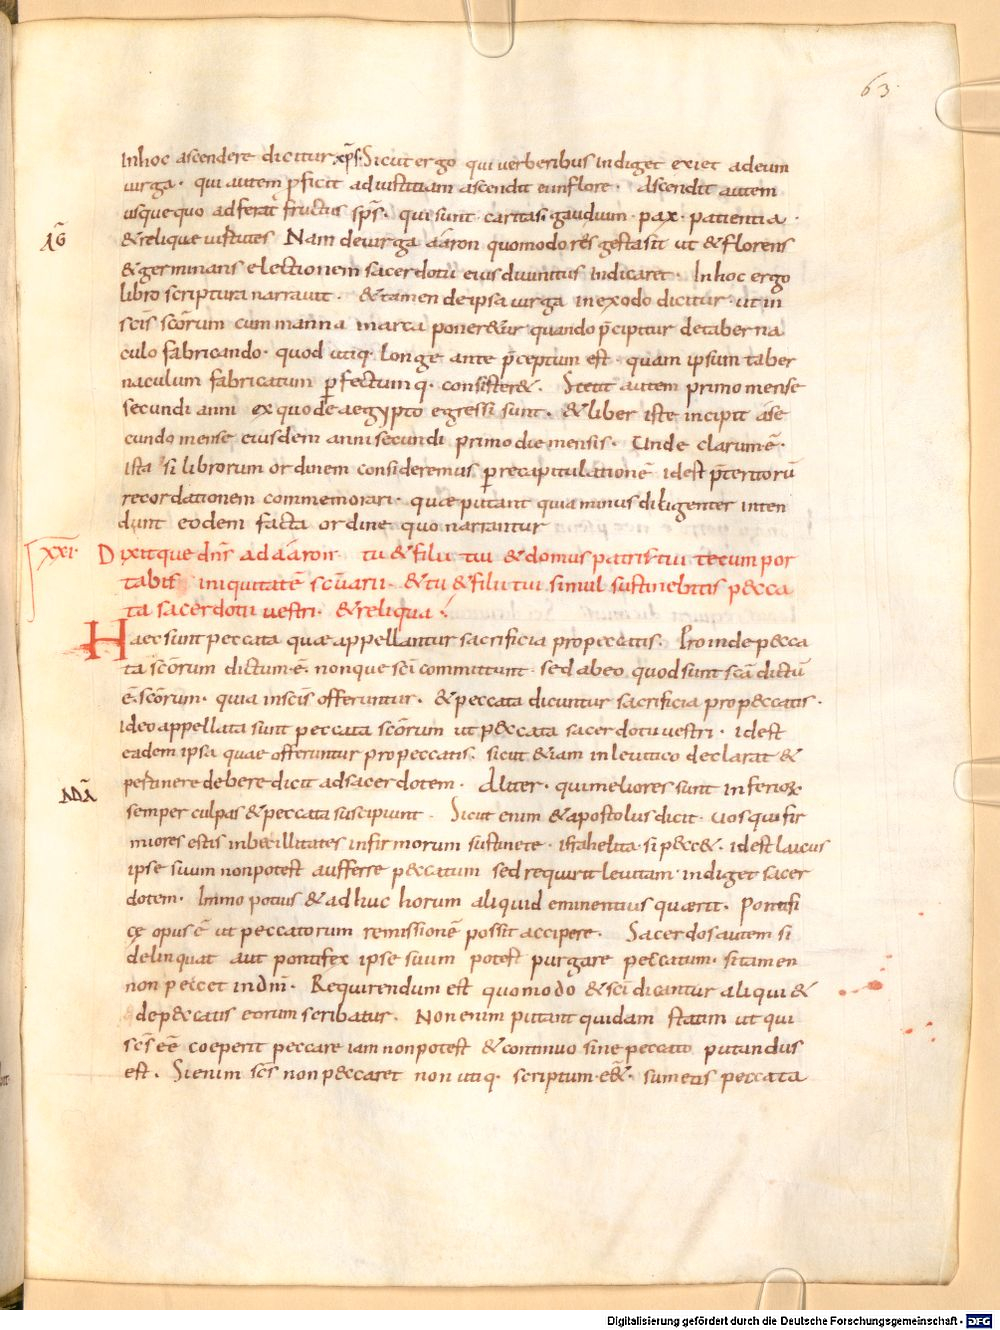 63.
Inhoc ascendere dicitur xp̄s. Sicut ergo qui uerberibus indiget exiet adeum
uirga · qui autem p̄ficit adiustitiam ascendit eumflore · Ascendit autem
usquequo adferat fructus sp̄s · qui sunt caritas · gaudium · pax · patientia ·
AḠ
& relique uirtutes Nam deuirga aaron quomodo res gesta sit ut & florens
& germinans electionem sacerdotū eius diuinitus indicaret · Inhoc ergo
libro scriptura narrauit · & tamen deipsa uirga inexodo dicitur · ut in
sc̄is sc̄orum cum manna in arca poner&ur quando p̄cipitur detaberna
culo fabricando · quod utiq · longe ante p̄ceptum est · quam ipsum taber
naculum fabricatum perfectumq · consister& · Stetit autem primo mense
secundi anni ex quo de aegypto egressi sunt · & liber iste incipit ase
cundo mense eiusdem anni secundi primo die mensis · Unde clarum · ē ·
ista si librorum ordinem consideremus per recapitulationē idest p̄teritorū
recordationem commemorari · quae putant quia minus diligenter inten
dunt eodem facta ordine quo narrantur
XXI· Dixitque dn̄s ad aaron · tu & filii tui & domus patris tui tecum por
tabitis iniquitatē sc̄uarii · & tu & filii tui simul sustinebitis pecca
ta sacerdotii uestri · & reliqua ·
Haec sunt peccata quae appellantur sacrificia propeccatis · Proinde pecca
ta sc̄orum dictum · ē · nonque sc̄i committunt · sed abeo quod sunt sc̄a dictū
ē · sc̄orum · quia insc̄is offeruntur · & peccata dicuntur sacrificia propeccatis ·
Ideo appellata sunt peccata sc̄orum ut peccata sacerdotii uestri · idest
eadem ipsa quae offeruntur propeccatis · sicut &iam inleuitico declarat &
pertinere debere dicit adsacerdotem · Aliter · qui meliores sunt inferiorum
ADĀ
semper culpas & peccata suscipiunt · Sicut enim & apostolus dicit · uos qui fir
miores estis inbecillitates infirmorum sustinete · israhelita · si pecc& · idest laicus
ipse suum nonpotest aufferre peccatum sed requirit leuitam indiget sacer
dotem · Immo potius & adhuc horum aliquid eminentius quaerit · Pontifi
ce opus ē ut peccatorum remissionē possit accipere · Sacerdos autem si
delinquat aut pontifex ipse suum potest purgare peccatum · si tamen
non peccet in dn̄m · Requirendum est quomodo & sc̄i dicantur aliqui &
depeccatis eorum scribatur · Non enim putant quidam statim ut qui
sc̄s ēē coeperit peccare iam nonpotest & continuo sine peccato putandus
est · Si enim sc̄s non peccaret non utiq · scriptum · ess& · sumetis peccata
Digitalisierung gefördert durch die Deutsche Forschungsgemeinschaft · DFG